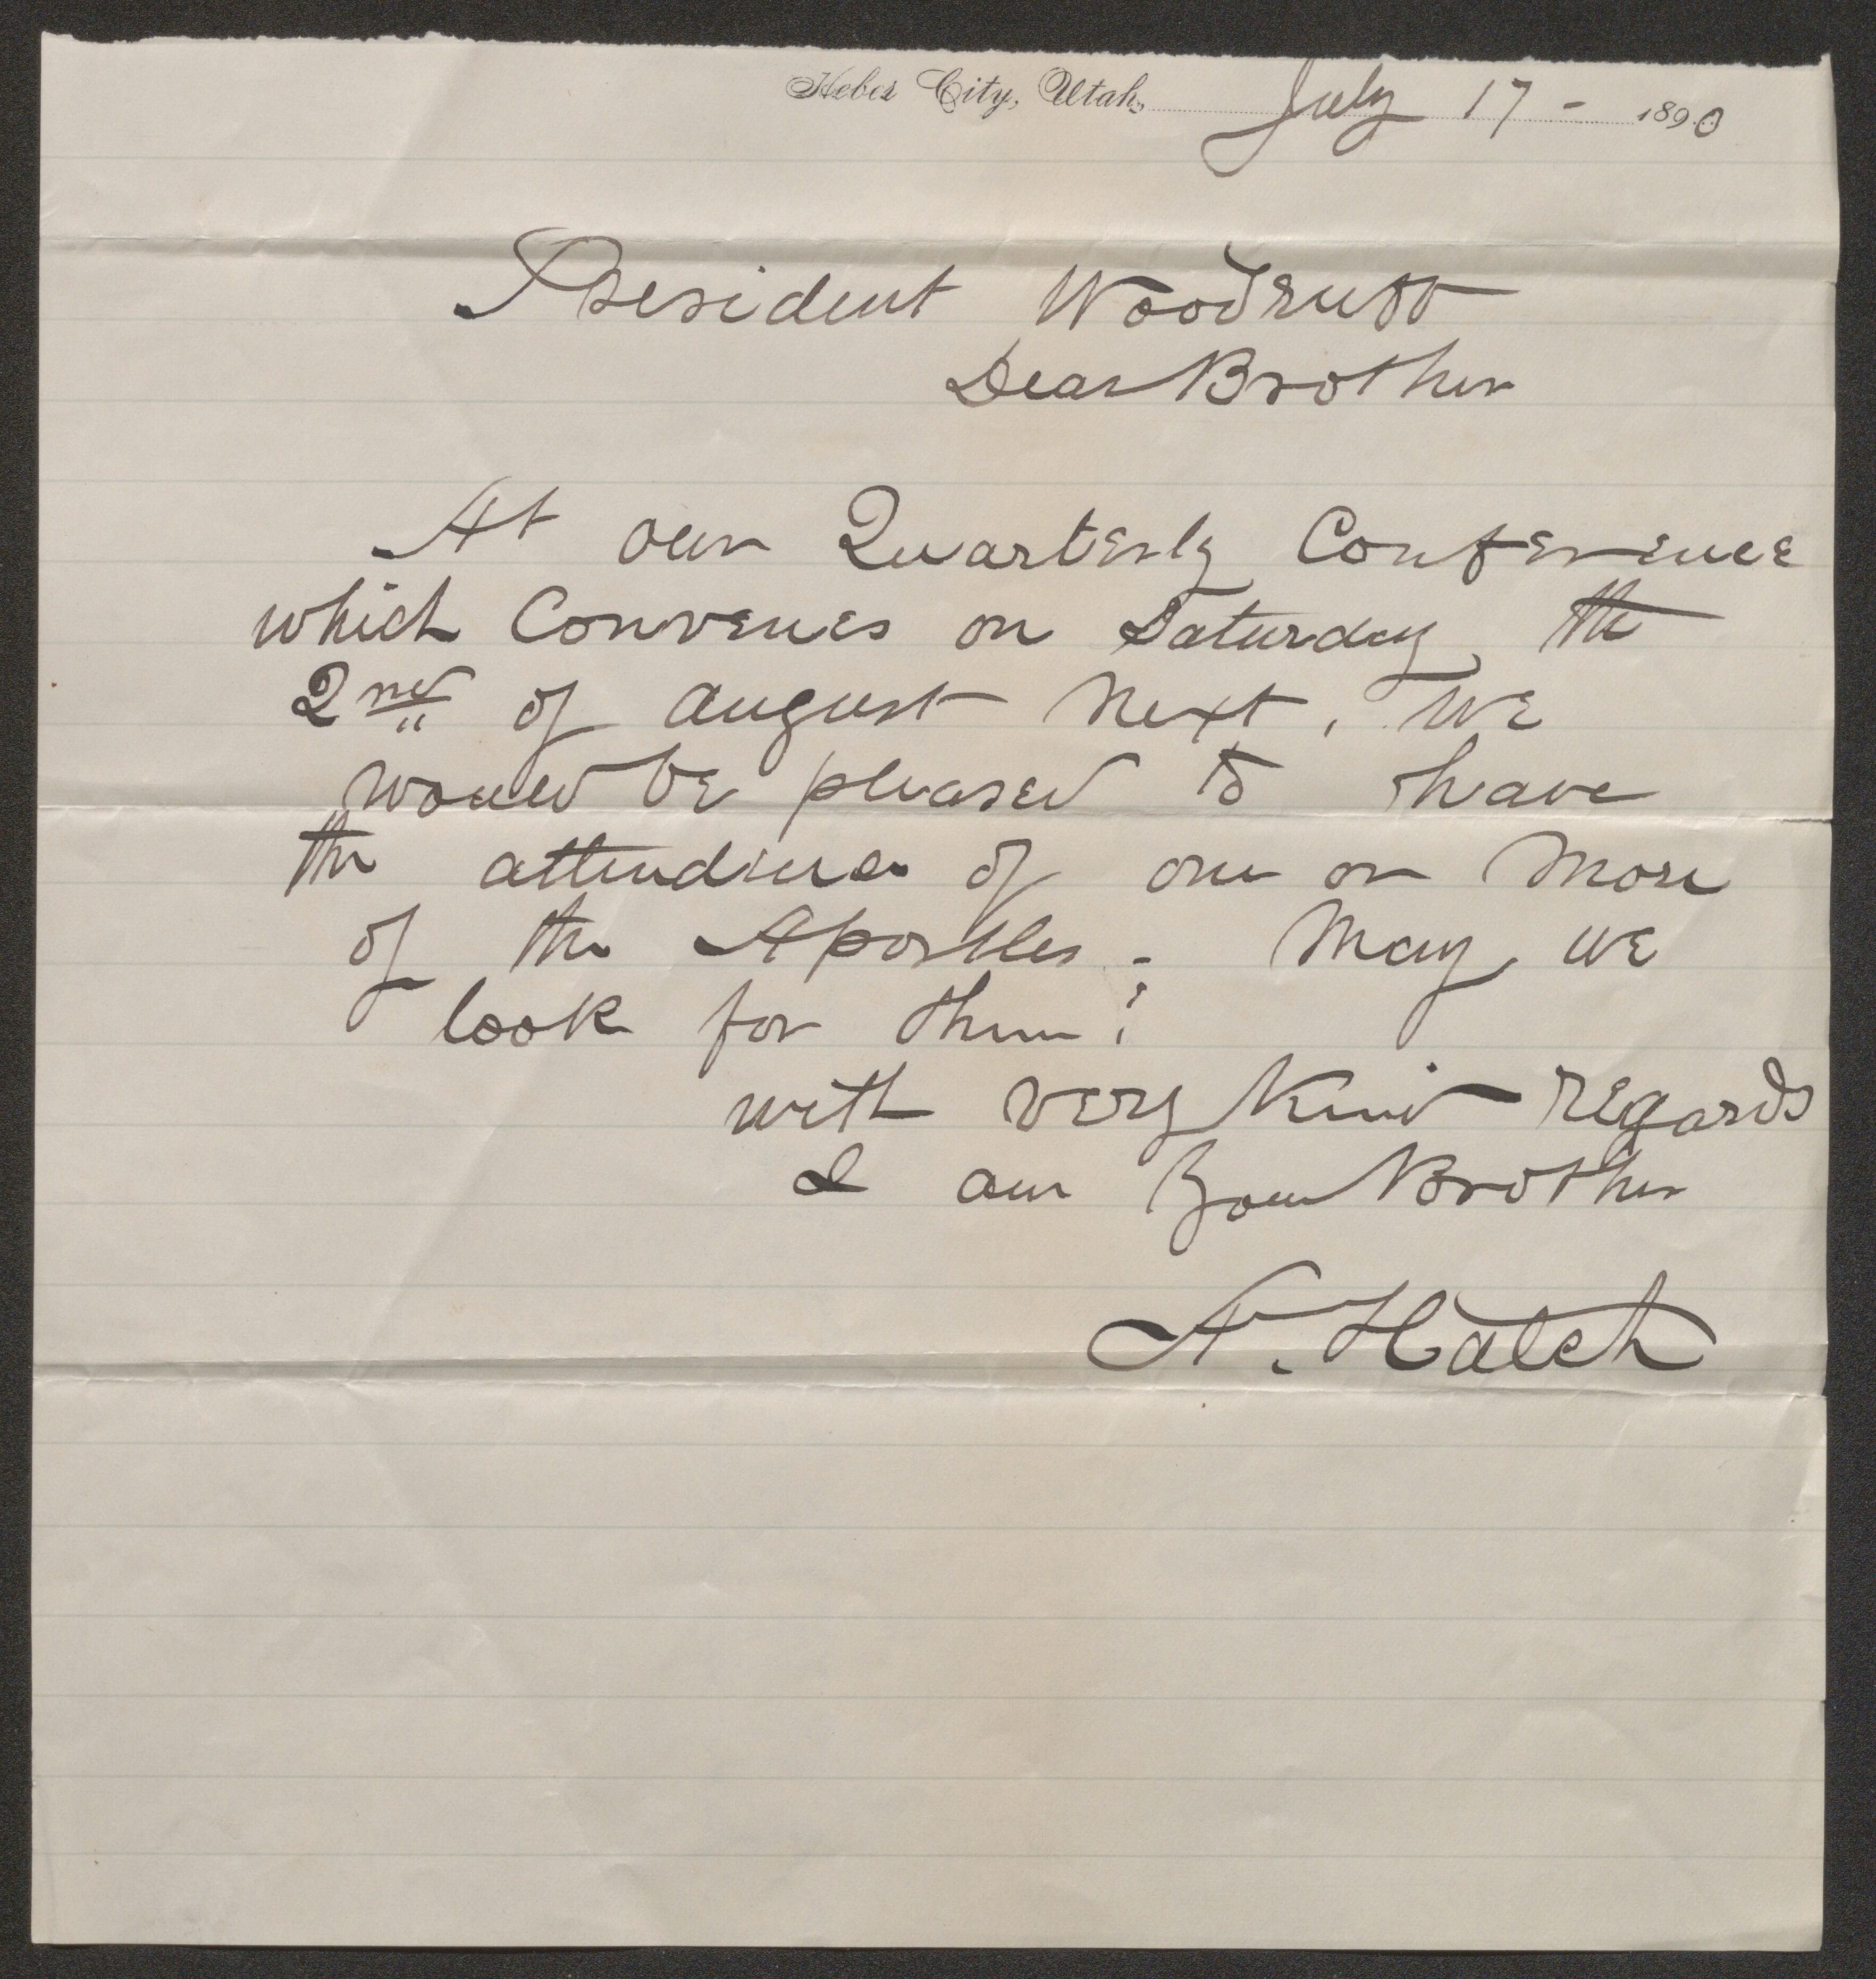 Heber City, Utah, July 17 - 1890
President Woodruff
Dear Brother
At our Quarterly Conference
which Convenes on Saturday the
2nd of august Next, we
would be pleased to have
the attendance of one or More
of the Apostles - May we
look for them?
with very Kind regards
I am Your Brother
A. Hatch